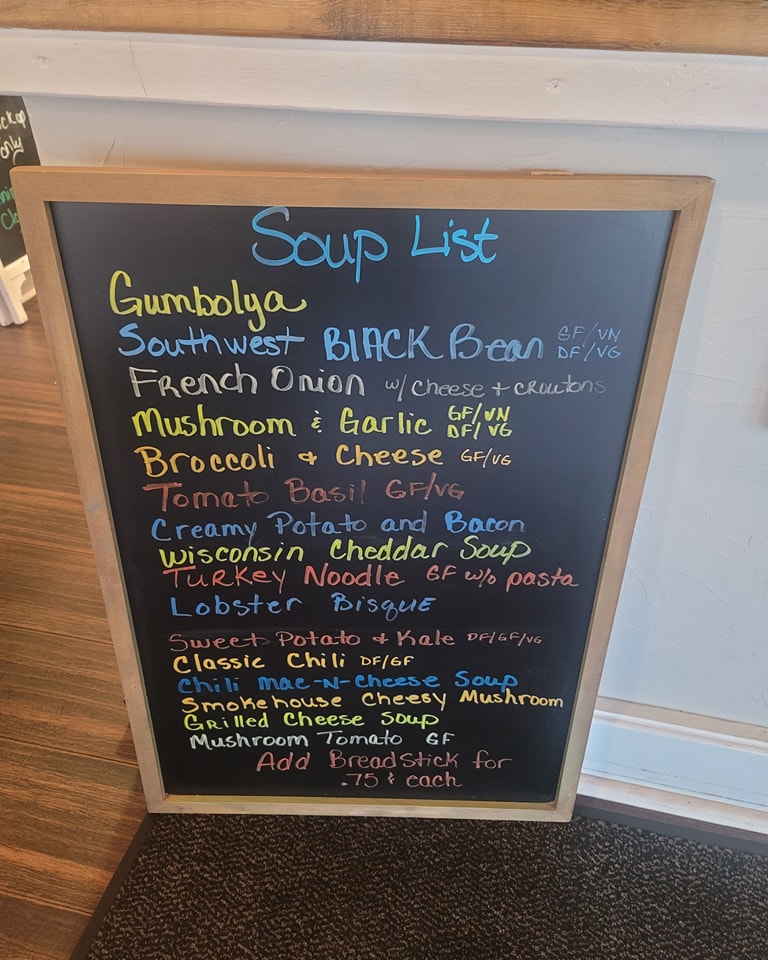 ckup
only
Soup List
Gumbolya
Southwest BLACK Bean GF/VN
DF/VG
French Onion w/ cheese + croutons
Mushroom & Garlic GF/VN
DF/VG
Broccoli & Cheese GF/VG
Tomato Basil GF/VG
Creamy Potato and Bacon
Wisconsin Cheddar Soup
Turkey Noodle GF w/o pasta
Lobster Bisque
Sweet Potato & Kale DF/GF/VG
Classic Chili DF/GF
Chili Mac-N-Cheese Soup
Smokehouse Cheesy Mushroom
Grilled Cheese Soup
Mushroom Tomato GF
Add BreadStick for
.75¢ each